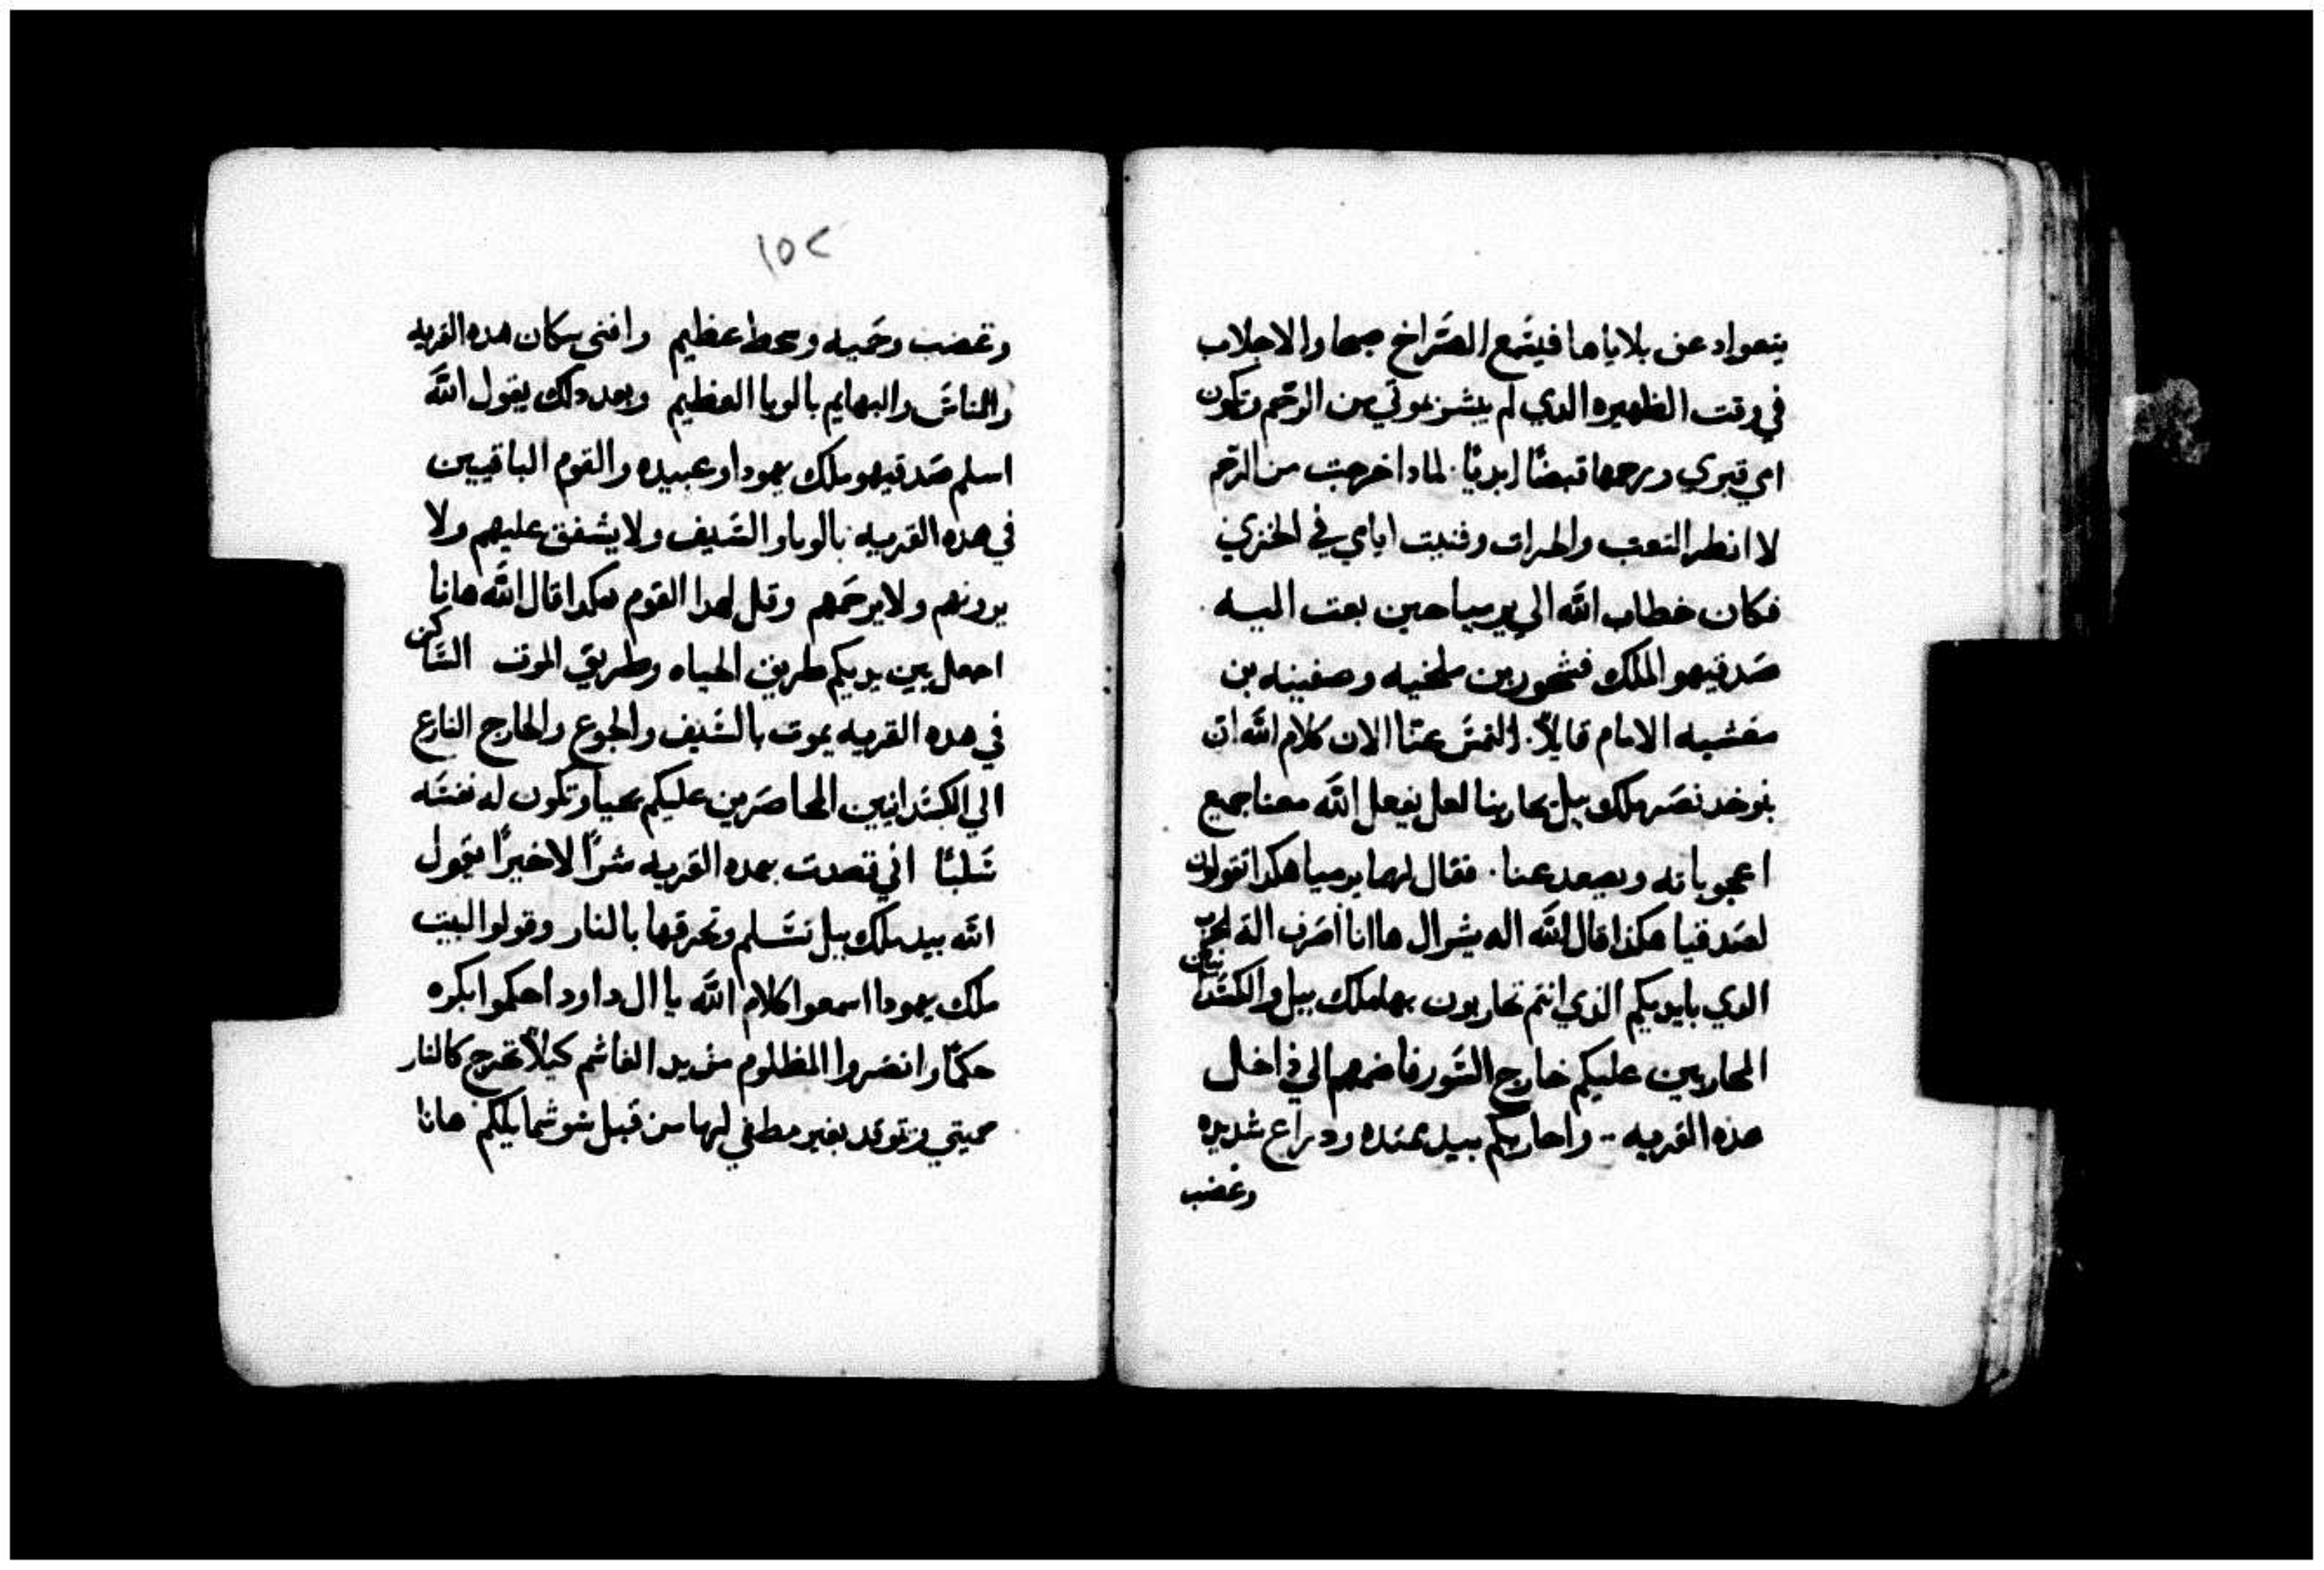 يتعواد عن بلاياها فيسَمع الصَراخ صبحا والاجلاب
في وقت الظهيره الدي لم يشز موتي من الرحَم وتكون
امي قبري ورحمها قبضًا ابديًا. لمادا خرجت من الرحَم
لا انظر التعب والحسرات وفنيت ايامي في الخزي
فكان خطاب اللّه الي يرميا حين بعت اليه
صَدقيهو الملك فشحور بن ملخيه وصفينه بن
معَشيه الامام قايلاً. التمسَ عنّا الان كلام اللّه ان
بنوخد نصَر ملك ببل يحاربنا لعل يفعل اللّه معنا جميع
اعجوباته ويصعد عنا. فقال لهما يرميا هكدا تقولون
لصَدقيا هكذا قال اللّه اله يشرال ها انا اصَرف الة الحرب
الدي بايديكم الذي انتم تحاربون بها ملك ببل والكسَدانيين
المحاربين عليكم خارج السَور فاضمهم الي داخل
هذه القريه .. واحاربكم بيد ممتده ودراع شديده
وغضب
١٥٢
وغضب وحَميه وسخط عظيم وافني سكان هده القريه
والناسَ والبهايم بالوبا العظيم وبعد دلك يقول اللَّه
اسلم صَدقيهو ملك يهودا وعبيده والقوم الباقيين
في هده القريه بالوبا والسَيف ولا يشفق عليهم ولا
يرونهم ولا يرحَمهم وقل لهدا القوم هكدا قال اللَّه هانا
اجعل بين يديكم طريق الحياه وطريق الموت السَاكن
في هده القريه يموت بالسَيف والجوع والخارج النازع
الي الكسَدانيين المحاصَرين عليكم يحيا وتكون له نفسَه
سَلبًا اني قصدت بهده القريه شرًا لا خيرًا يقول
اللّه بيد ملك ببل تسَلم وتحرقها بالنار وقولوا لبيت
ملك يهودا اسمعوا كلام اللَّه يا ال داود احكموا بكره
حكمًا وانصَروا المظلوم من يد الغاشم كيلاً تخرج كالنار
حميتي وتتوقد بغير مطفي لها من قبل سَو شمايلكم هانا